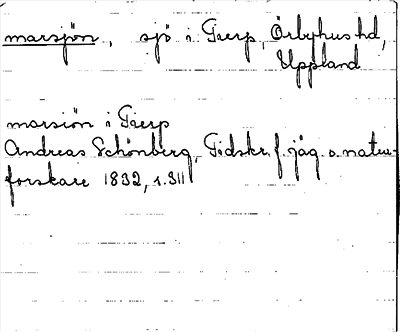 marsjön, sjö i Tierp, Örbyhus hd,
Uppland
marsiön i Tierp
Andreas Schönberg, Tidskr. f. jäg. o. natur-
forskare 1832, s. 311